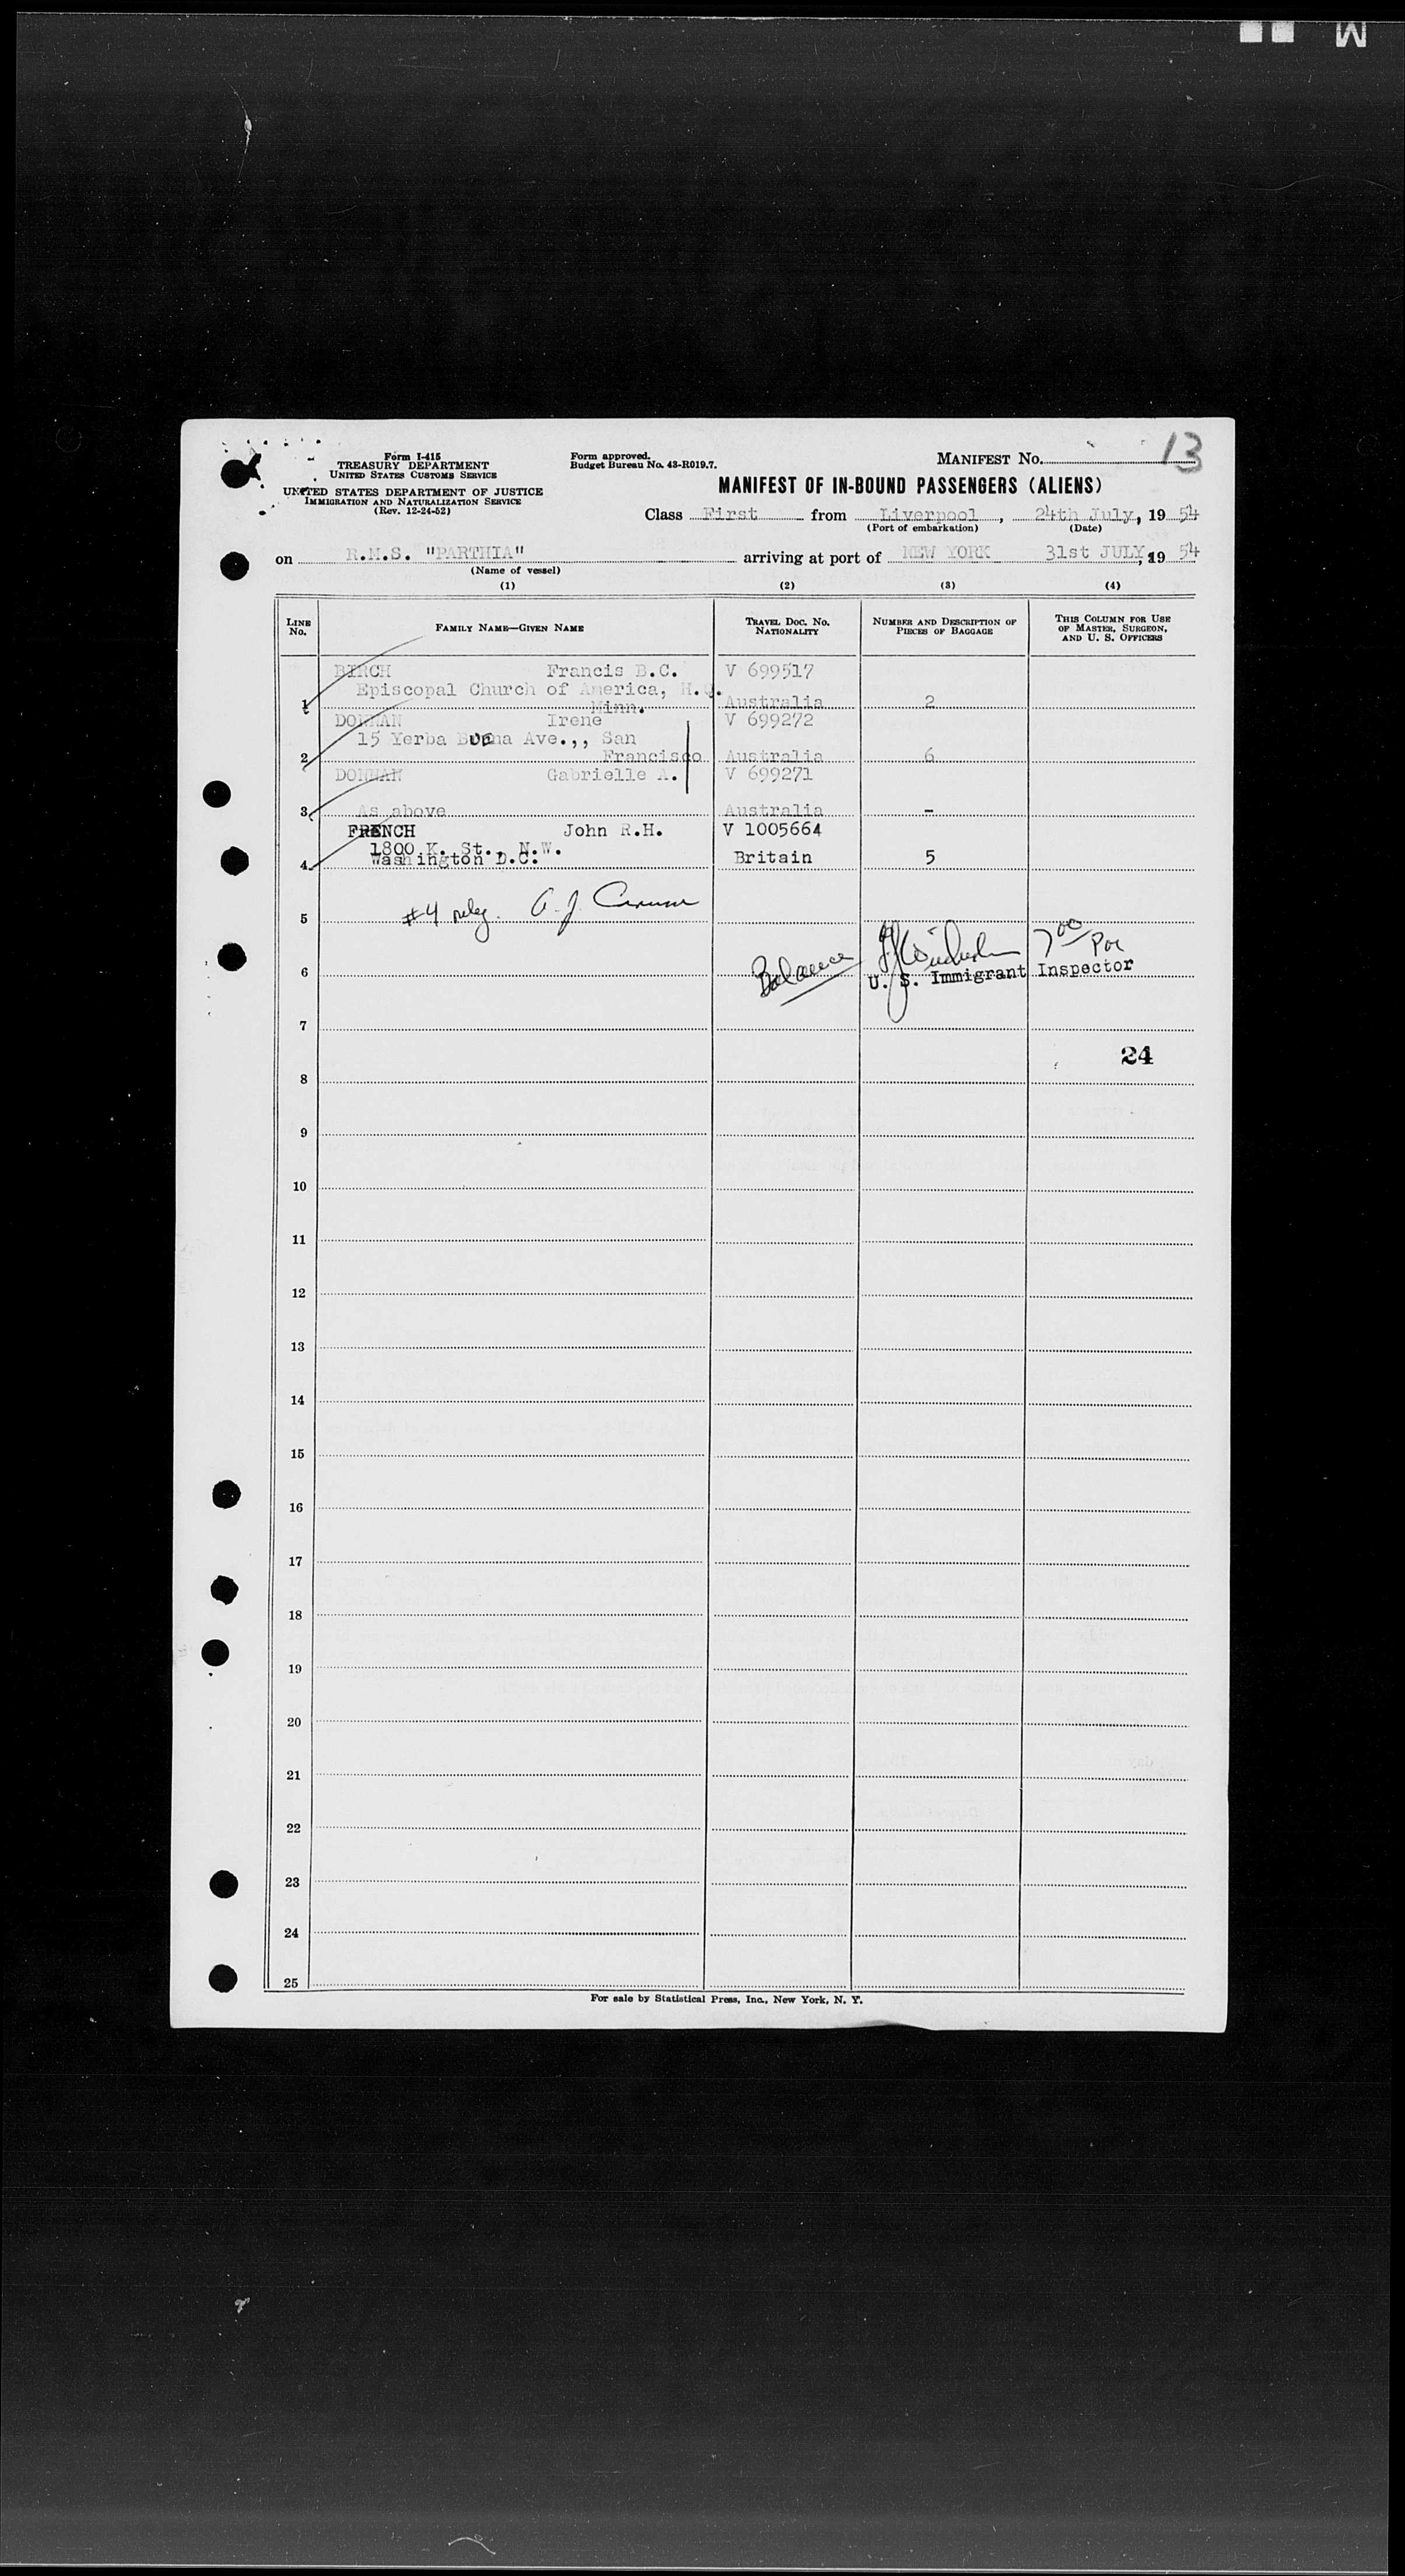 M
13
Form I-415
TREASURY DEPARTMENT
UNITED STATES CUSTOMS SERVICE
UNITED STATES DEPARTMENT OF JUSTICE
IMMIGRATION AND NATURALIZATION SERVICE
(Rev. 12-24-52)
Form approved.
Budget Bureau No. 43-R019.7.
MANIFEST No.
MANIFEST OF IN-BOUND PASSENGERS (ALIENS)
Class First from Liverpool, 24th July, 19 54
(Port of embarkation) (Date)
on R.M.S. "PARTHIA" arriving at port of NEW YORK 31st JULY, 19 54
(Name of vessel)
(1) (2) (3) (4)
LINE No. FAMILY NAME—GIVEN NAME TRAVEL DOC. No. NATIONALITY NUMBER AND DESCRIPTION OF PIECES OF BAGGAGE THIS COLUMN FOR USE OF MASTER, SURGEON, AND U. S. OFFICERS
BIRCH Francis B.C. V 699517
Episcopal Church of America, H.Q.
1 Minn. Australia 2
DONNAN Irene V 699272
15 Yerba Buena Ave.,, San
2 Francisco Australia 6
DONNAN Gabrielle A. V 699271
3 As above Australia -
FRENCH John R.H. V 1005664
1800 K. St., N.W.
4 Washington D.C. Britain 5
5 #4 A. J.
6 Balance 7 00
U. S. Immigrant Inspector
7
24
8
9
10
11
12
13
14
15
16
17
18
19
20
21
22
23
24
25
For sale by Statistical Press, Inc., New York, N. Y.